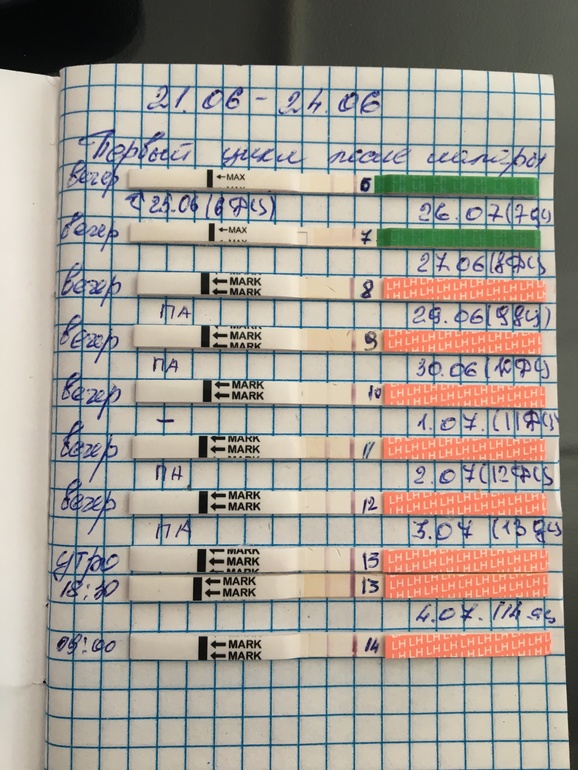 21.06 - 24.06
Первый цикл после
вечер ←MAX 6
25.06 (6дц) 26.07 (7дц
вечер ←MAX 7
27.06 (8дц
вечер ←MARK ←MARK 8 LH LH LH LH LH LH LH
ПА 29.06 (9дц)
вечер MARK ←MARK ←MARK 9 LH LH LH LH LH LH LH
ПА 30.06 (10дц
вечер ←MARK ←MARK 10 LH LH LH LH LH LH LH
– 1.07. (11дц
вечер MARK ←MARK ←MARK 11 LH LH LH LH LH LH LH
ПА 2.07 (12дц
вечер ←MARK ←MARK 12 LH LH LH LH LH LH LH
ПА 3.07 (13 дц
утро ←MARK ←MARK 13 LH LH LH LH LH LH LH
18:30 ←MARK ←MARK 13 LH LH LH LH LH LH LH
4.07. (14 дц
09:00 ←MARK ←MARK 14 LH LH LH LH LH LH LH